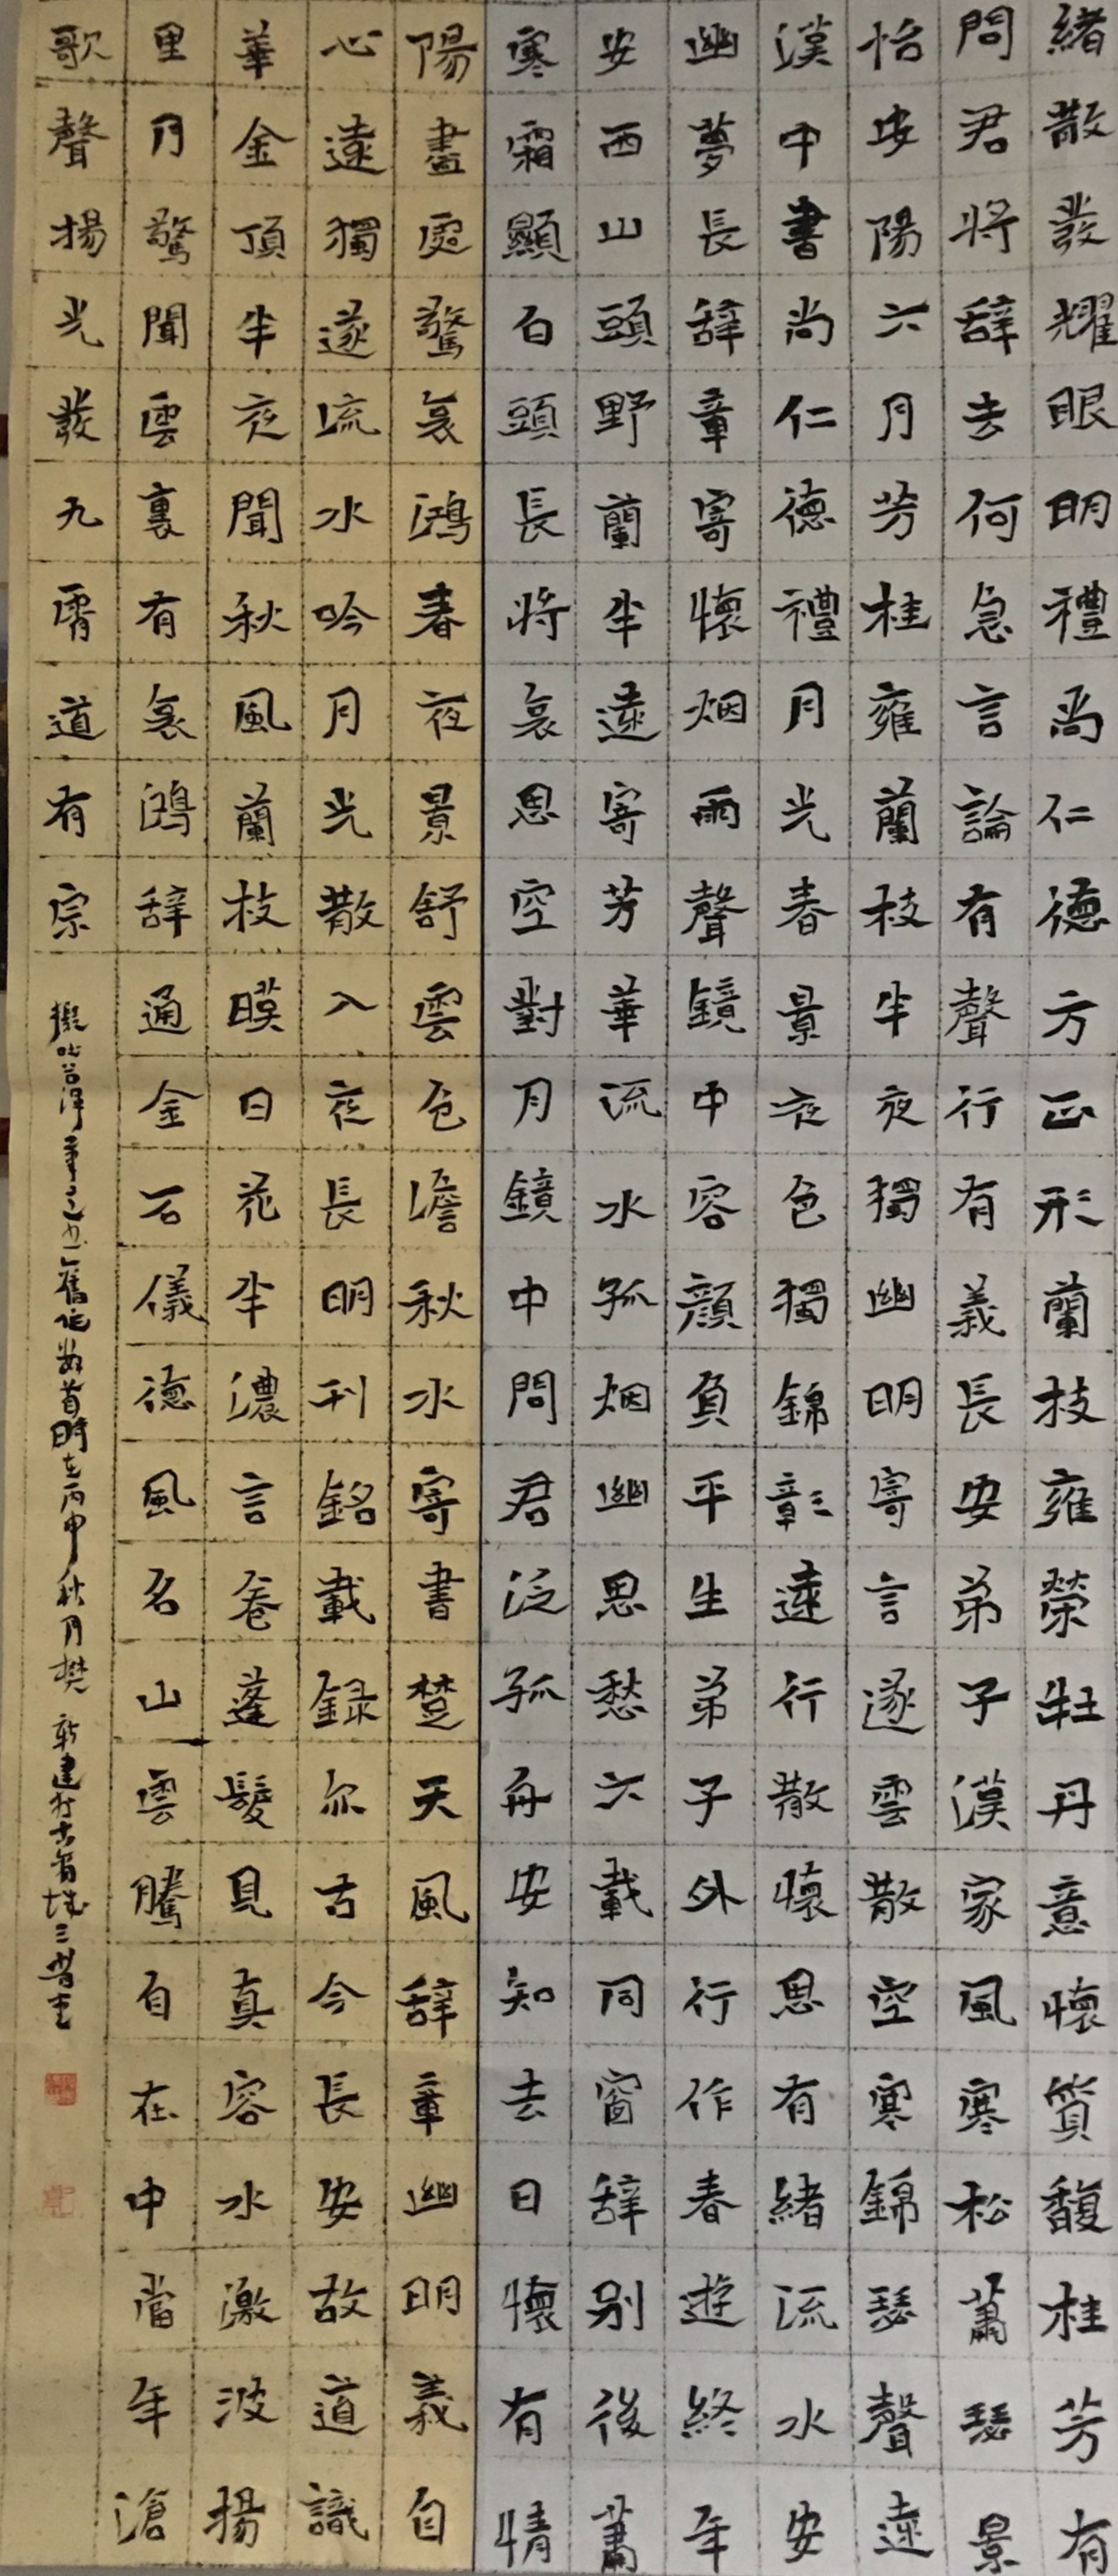 緒散發耀眼明禮尚仁德方正形蘭枝雍榮牡丹意懷質馥桂芳有
問君將辞去何急言論有聲行有義長安弟子漢家風寒松蕭瑟景
怡安陽六月芳桂雍蘭枝半夜獨幽明寄言遂雲散空寒錦瑟聲遠
漢中書尚仁德禮月光春景夜色獨錦彰遠行散懷思有緒流水安
幽夢長辞章寄懷烟雨聲鏡中容顔負平生弟子外行作春遊終年
安西山頭野蘭半遠寄芳華流水孤烟幽思愁六載同窗辞别後蕭
寒霜顯白頭長將哀思空對月鏡中問君泛孤舟安知去日懷有情
陽盡處驚哀鴻春夜景舒雲色澹秋水寄書楚天風辞章幽明義自
心遠獨遂流水吟月光散入夜長明刊銘載録尔古今長安故道識
華金頂半夜聞秋風蘭枝暎日花半濃言卷蓬髮見真容水激波揚
里月驚聞雲裏有哀鴻辞通金石儀德風名山雲騰自在中當年滄
歌聲揚光發九霄道有宗
舊作数首時在丙申秋月樊新建